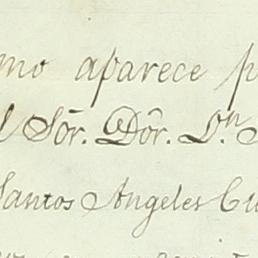 mo aparece p
l Sōr. Dōr. Dn.
Santos Angeles Cu